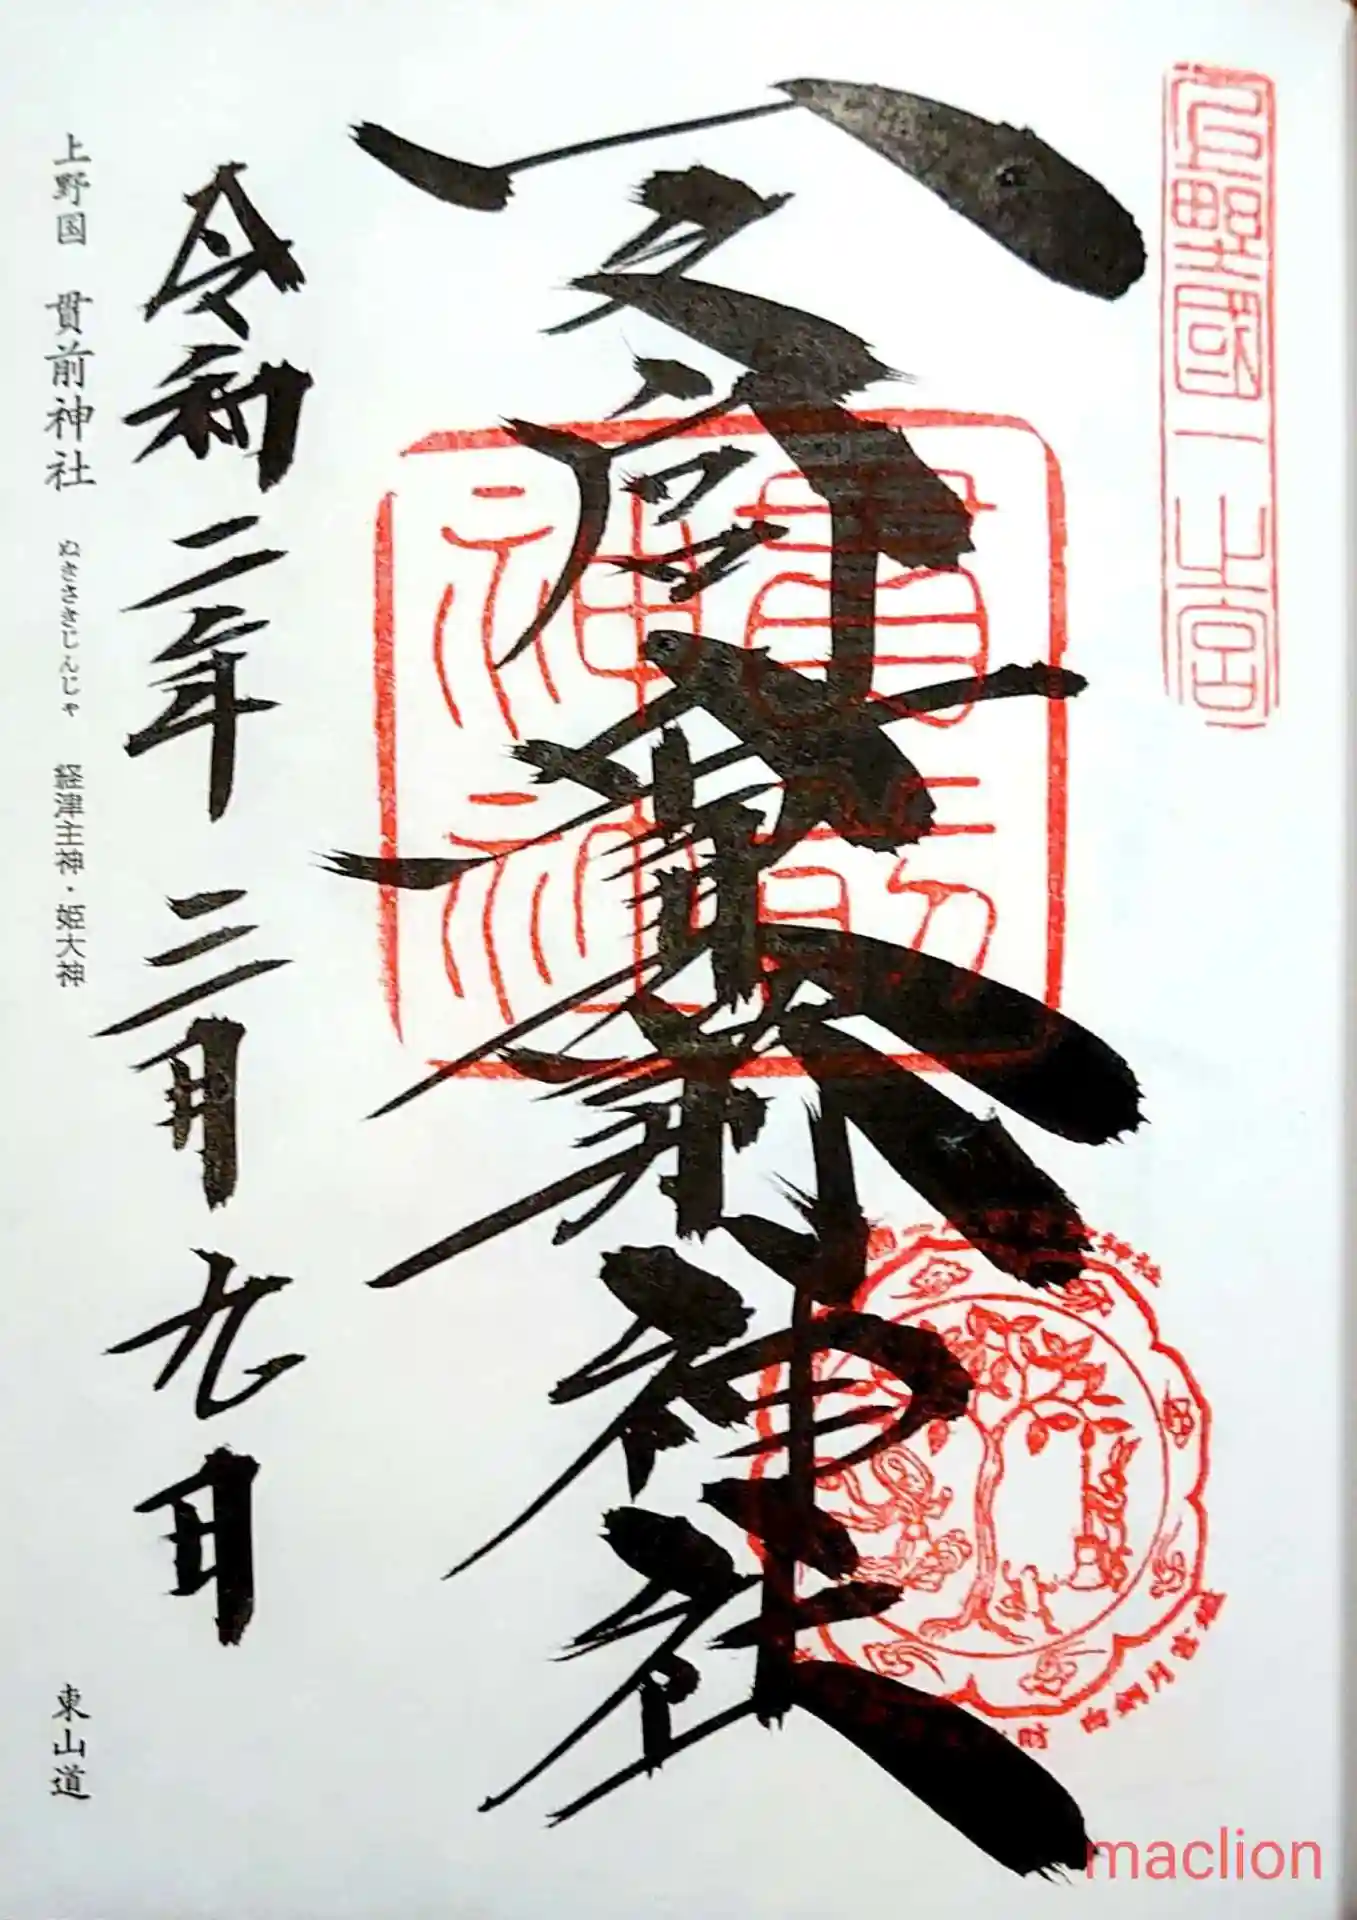 上野國一之宮
一之宮貫前神社
貫前
神社
白銅月宮鑑
令和二年三月九日
上野国 貫前神社 ぬきさきじんじゃ 経津主神・姫大神 東山道
maclion